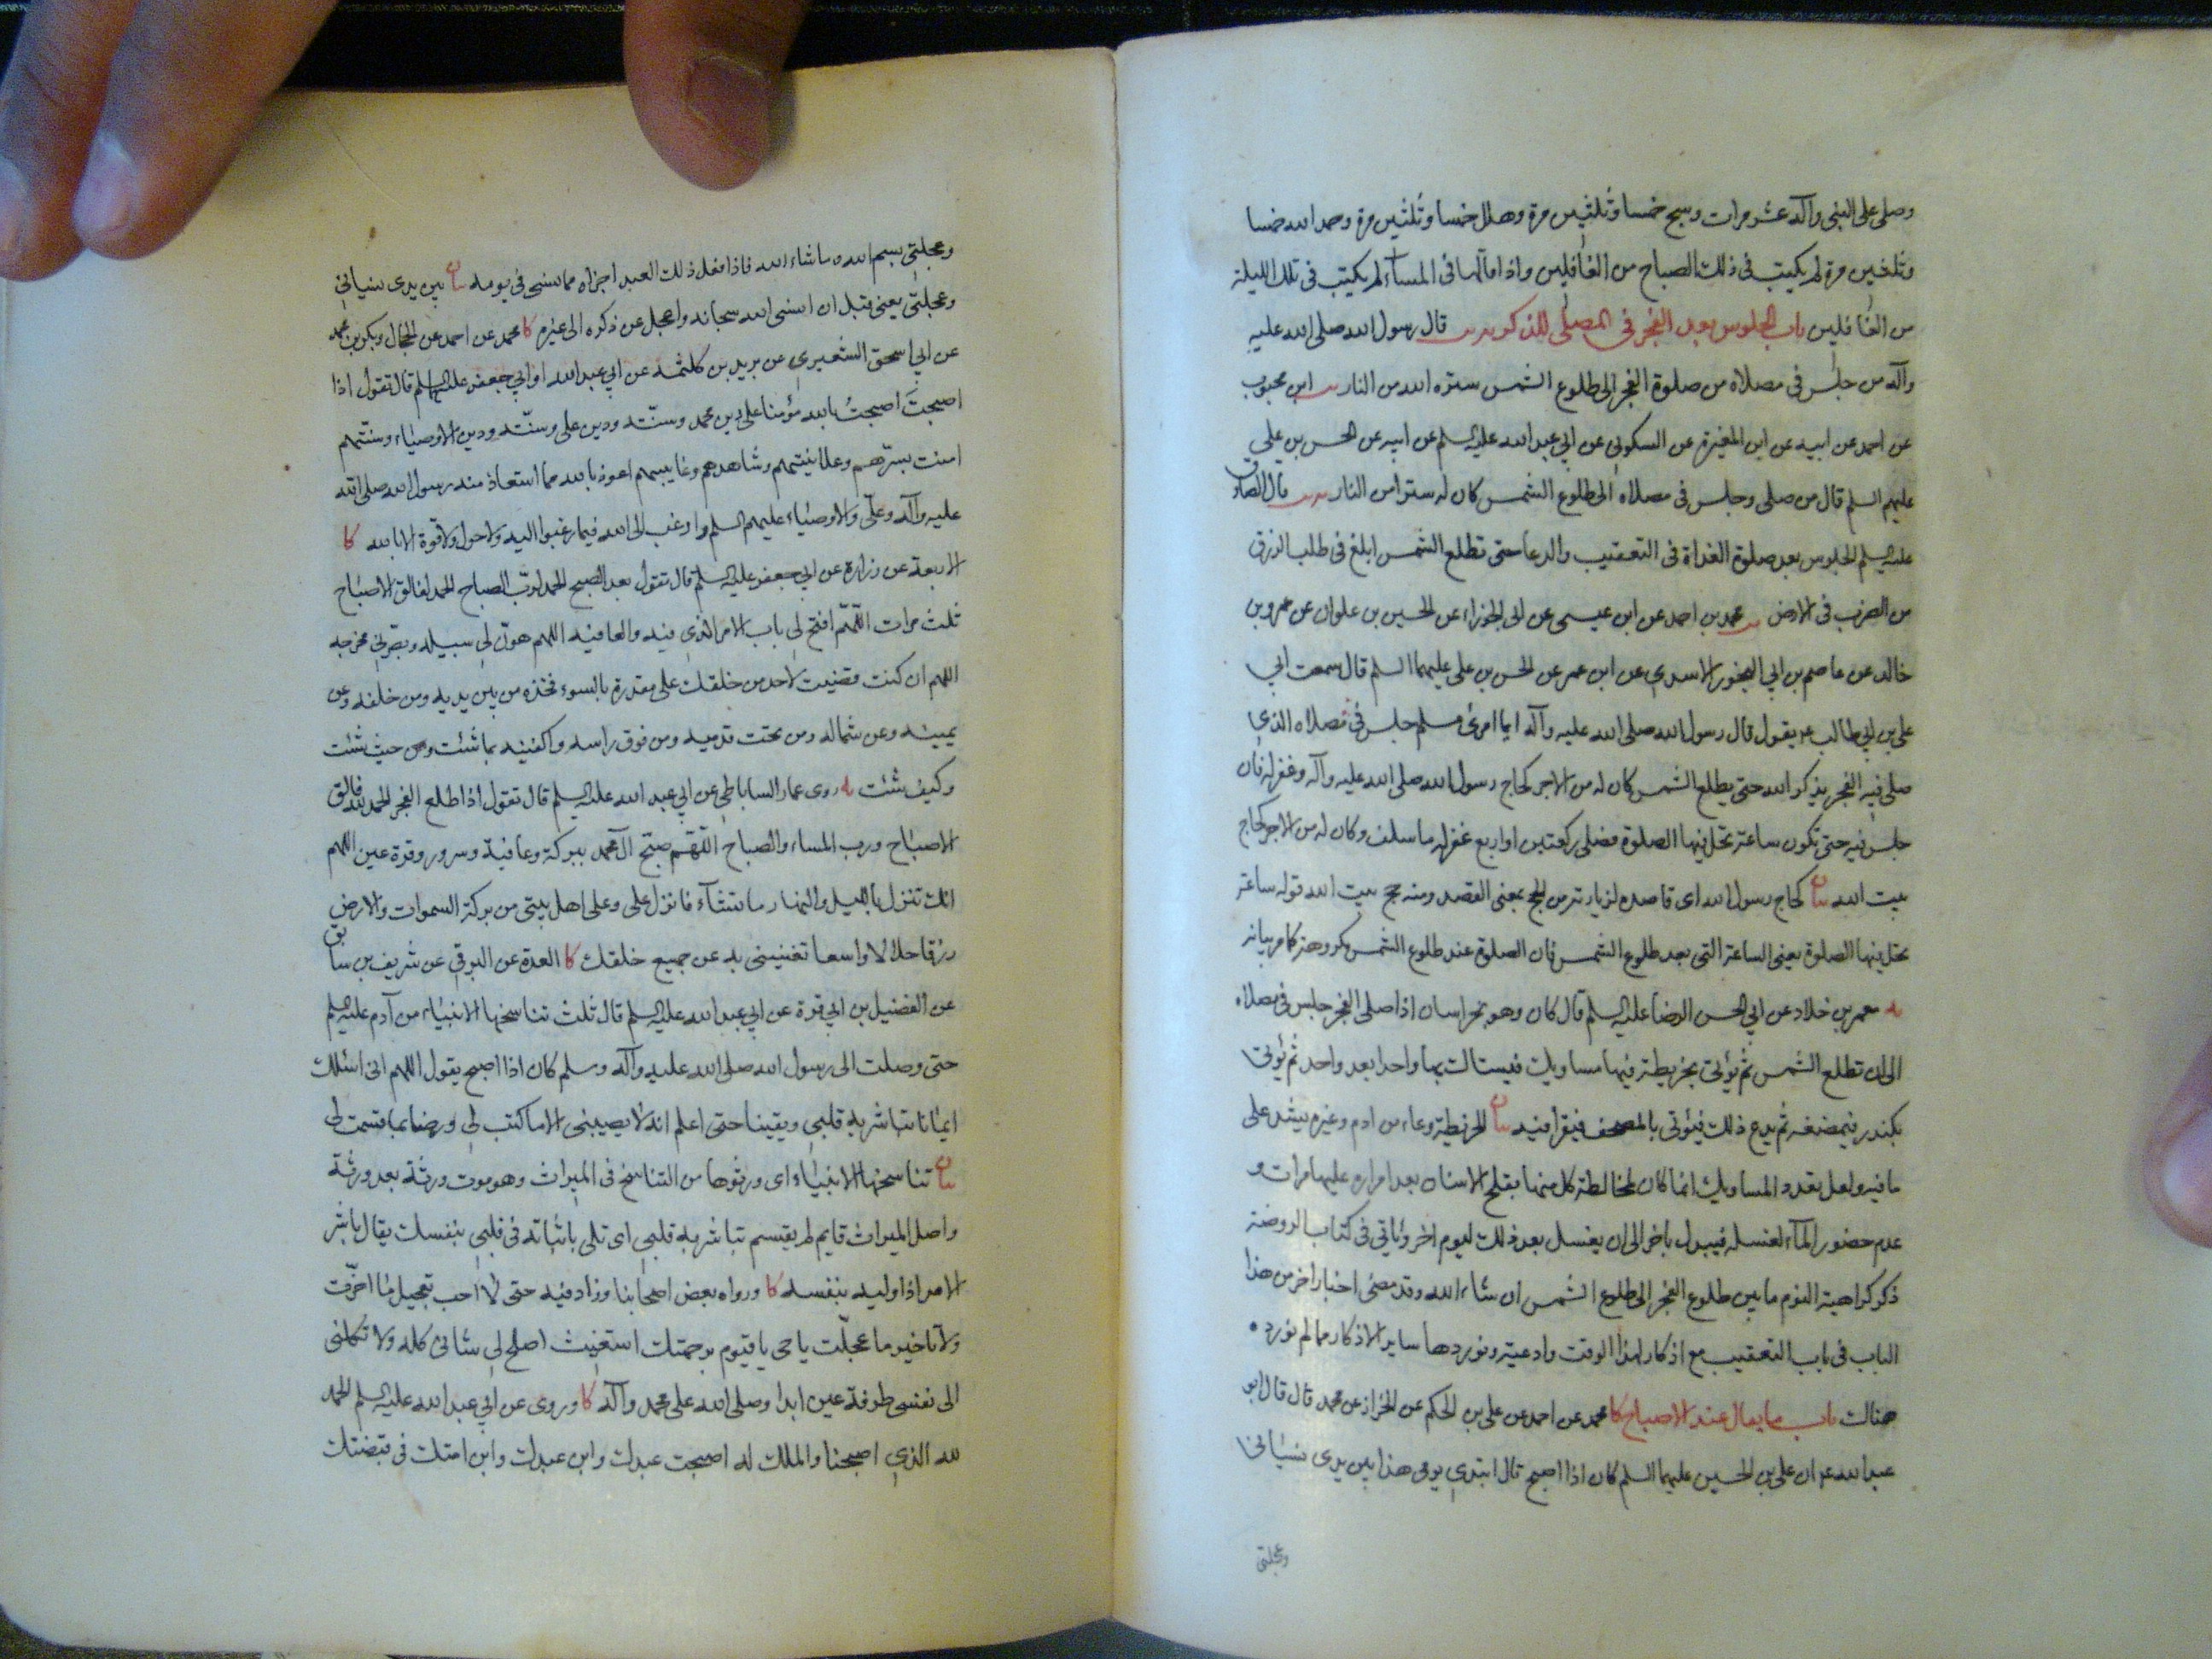 وصلى على النبى وآله عشر مرات وسبح خمسا وثلثين مرة وهلل خمسا وثلثين مرة وحمد الله خمسا
وثلثين مرة لم يكتب فى ذلك الصباح من الغافلين واذا قالها فى المساء لم يكتب فى تلك الليلة
من الغافلين باب الجلوس بعد الفجر فى المصلى للذكر يب قال رسول الله صلى الله عليه
وآله من جلس فى مصلاه من صلوة الفجر الى طلوع الشمس ستره الله من النار يب ابن محبوب
عن احمد عن ابيه عن ابن المغيرة عن السكونى عن ابي عبد الله عليه السلم عن ابيه عن الحسن بن علي
عليهم السلم قال من صلى وجلس فى مصلاه الى طلوع الشمس كان له سترا من النار يب قال الصادق
عليه السلم الجلوس بعد صلوة الغداة فى التعقيب والدعا حتى تطلع الشمس ابلغ فى طلب الرزق
من الضرب فى الارض يب محمد بن احمد عن ابن عيسى عن ابى الجوزاء عن الحسين بن علوان عن عمرو بن
خالد عن عاصم بن ابي النجود الاسدي عن ابن عمر عن الحسن بن على عليهما السلم قال سمعت ابي
على بن ابي طالب ع يقول قال رسول الله صلى الله عليه وآله ايما امرئ مسلم جلس فى مصلاه الذي
صلى فيه الفجر يذكر الله حتى يطلع الشمس كان له من الاجر كحاج رسول الله صلى الله عليه وآله وغفر له فان
جلس فيه حتى تكون ساعة تحل فيها الصلوة فصلى ركعتين او اربع غفر له ما سلف وكان له من الاجر كحاج
بيت الله بيان كحاج رسول الله اى قاصده لزيارته من الحج بمعنى القصد ومنه حج بيت الله قوله ساعة
تحل فيها الصلوة يعنى الساعة التى بعد طلوع الشمس فان الصلوة عند طلوع الشمس مكروهة كما مر بيانه
يه معمر بن خلاد عن ابي الحسن الرضا عليه السلم قال كان وهو بخراسان اذا صلى الفجر جلس فى مصلاه
الى ان تطلع الشمس ثم يؤتى بخريطة فيها مساويك فيستاك بها واحدا بعد واحد ثم يؤتى
بكندر فيمضغه ثم يدع ذلك فيؤتى بالمصحف فيقرأ فيه بيان الخريطة وعاء من ادم وغيره يشد على
ما فيه ولعل تعدد المساويك انما كان لمخالطة كل منها بقلح الاسنان بعد امراره عليها مرات و
عدم حضور المآء لغسله فيبدل باخر الى ان يغسل بعد ذلك ليوم اخر وياتى فى كتاب الروضة
ذكر كراهية النوم ما بين طلوع الفجر الى طلوع الشمس ان شاء الله وقد مضى اخبار اخر من هذا
الباب فى باب التعقيب مع اذكار لهذا الوقت وادعية ونوردها ساير الاذكار مما لم نورد
هنالك باب ما يقال عند الاصباح كا محمد عن احمد عن على بن الحكم عن الخراز عن محمد قال قال ابو
عبد الله ع ان على بن الحسين عليهما السلم كان اذا اصبح قال ابتدي يومى هذا بين يدى نسيانى
وعجلتى
وعجلتى بسم الله وما شاء الله فاذا فعل ذلك العبد اجزاه مما نسى فى يومه بيان بين يدى نسيانى
وعجلتى يعنى قبل ان انسى الله سبحانه واعجل عن ذكره الى غيره كا محمد عن احمد عن الحجال وبكر بن محمد
عن ابي اسحق الشعيري عن بريد بن كلثمة عن ابي عبد الله او ابي جعفر عليهما السلم قال تقول اذا
اصبحت اصبحت بالله مؤمنا على دين محمد وسنته ودين على وسنته ودين الاوصياء وسنتهم
امنت بسرهم وعلانيتهم وشاهدهم وغايبهم اعوذ بالله مما استعاذ منه رسول الله صلى الله
عليه وآله وعلى والاوصياء عليهم السلم وارغب الى الله فيما رغبوا اليه ولا حول ولا قوة الا بالله كا
الاربعة عن زرارة عن ابي جعفر عليه السلم قال تقول بعد الصبح الحمد لرب الصباح الحمد لفالق الاصباح
ثلث مرات اللهم افتح لى باب الامر الذي فيه والعافية اللهم هون لى سبيله وبصرنى مخرجه
اللهم ان كنت قضيت لاحد من خلقك على مقدرة بالسوء فخذه من بين يديه ومن خلفه وعن
يمينه وعن شماله ومن تحت قدميه ومن فوق راسه واكفنيه بما شئت ومن حيث شئت
وكيف شئت يه روى عمار الساباطى عن ابي عبد الله عليه السلم قال تقول اذا طلع الفجر الحمد لله فالق
الاصباح ورب المساء والصباح اللهم صبح آل محمد ببركة وعافية وسرور وقرة عين اللهم
انك تنزل بالليل والنهار ما تشآء فانزل على وعلى اهل بيتى من بركة السموات والارض
رزقا حلالا واسعا تغنينى به عن جميع خلقك كا العدة عن البرقي عن شريف بن سابق
عن الفضيل بن ابي قرة عن ابي عبد الله عليه السلم قال ثلث تناسخها الانبياء من آدم عليه السلم
حتى وصلت الى رسول الله صلى الله عليه وآله وسلم كان اذا اصبح يقول اللهم انى اسئلك
ايمانا تباشر به قلبي ويقينا حتى اعلم انه لا يصيبنى الا ما كتب لى ورضنى بما قسمت لى
بيان تناسخها الانبياء اى ورثوها من التناسخ فى الميراث وهو موت ورثة بعد ورثة
واصل الميراث قايم لم يقسم تباشر به قلبي اى تلى باثباته فى قلبي بنفسك يقال باشر
الامر اذا وليه بنفسه كا ورواه بعض اصحابنا وزاد فيه حتى لا احب تعجيل ما اخرت
ولا تاخير ما عجلت يا حى يا قيوم برحمتك استغيث اصلح لى شانى كله ولا تكلنى
الى نفسى طرفة عين ابدا وصلى الله على محمد وآله كا وروى عن ابي عبد الله عليه السلم الحمد
لله الذي اصبحنا والملك له اصبحت عبدك وابن عبدك وابن امتك فى قبضتك